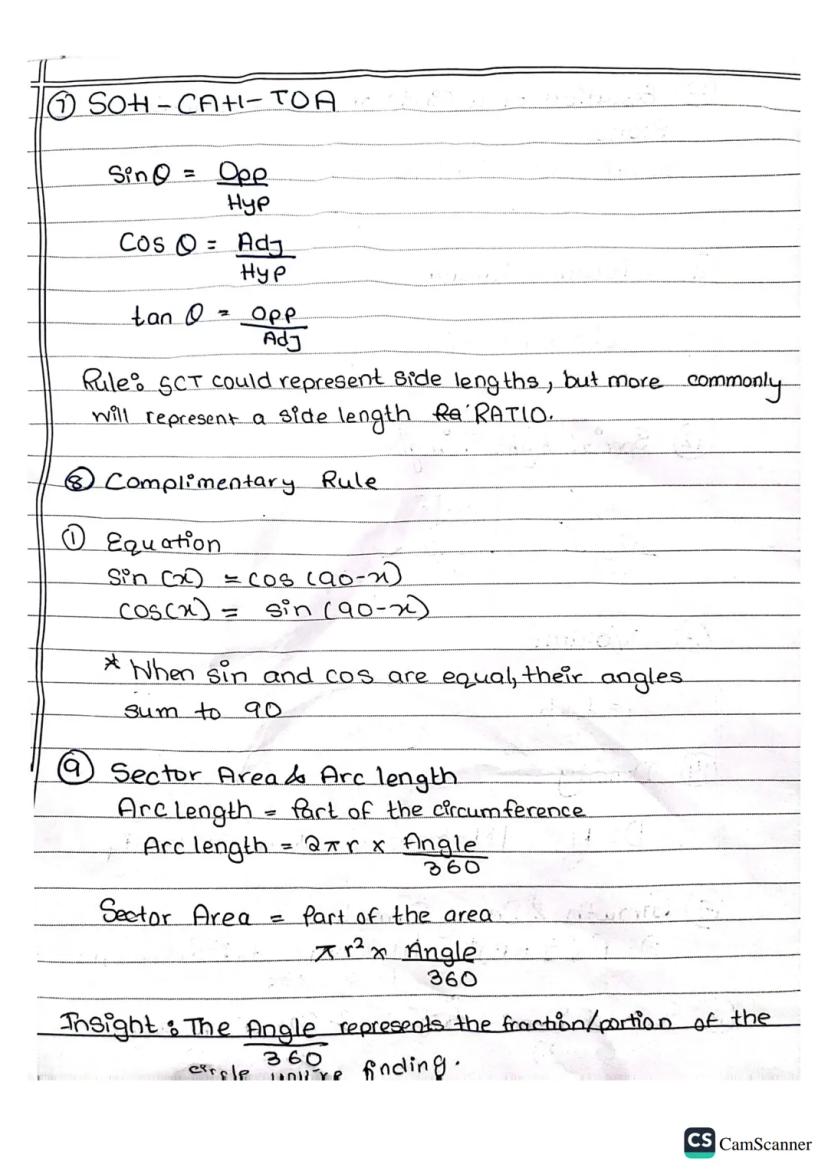 ⑦ SOH-CAH-TOA
Sinθ = Opp
Hyp
Cos θ = Adj
Hyp
tan θ = Opp
Adj
Rule: SCT could represent side lengths, but more commonly
will represent a side length RATIO.
⑧ Complimentary Rule
① Equation
Sin (x) = cos (90-x)
cos(x) = sin (90-x)
* When sin and cos are equal, their angles
sum to 90
⑨ Sector Area & Arc length
Arc Length = Part of the circumference
Arc length = 2πr x Angle
360
Sector Area = Part of the area
πr² x Angle
360
Insight: The Angle represents the fraction/portion of the
360
circle you're finding.
CS CamScanner